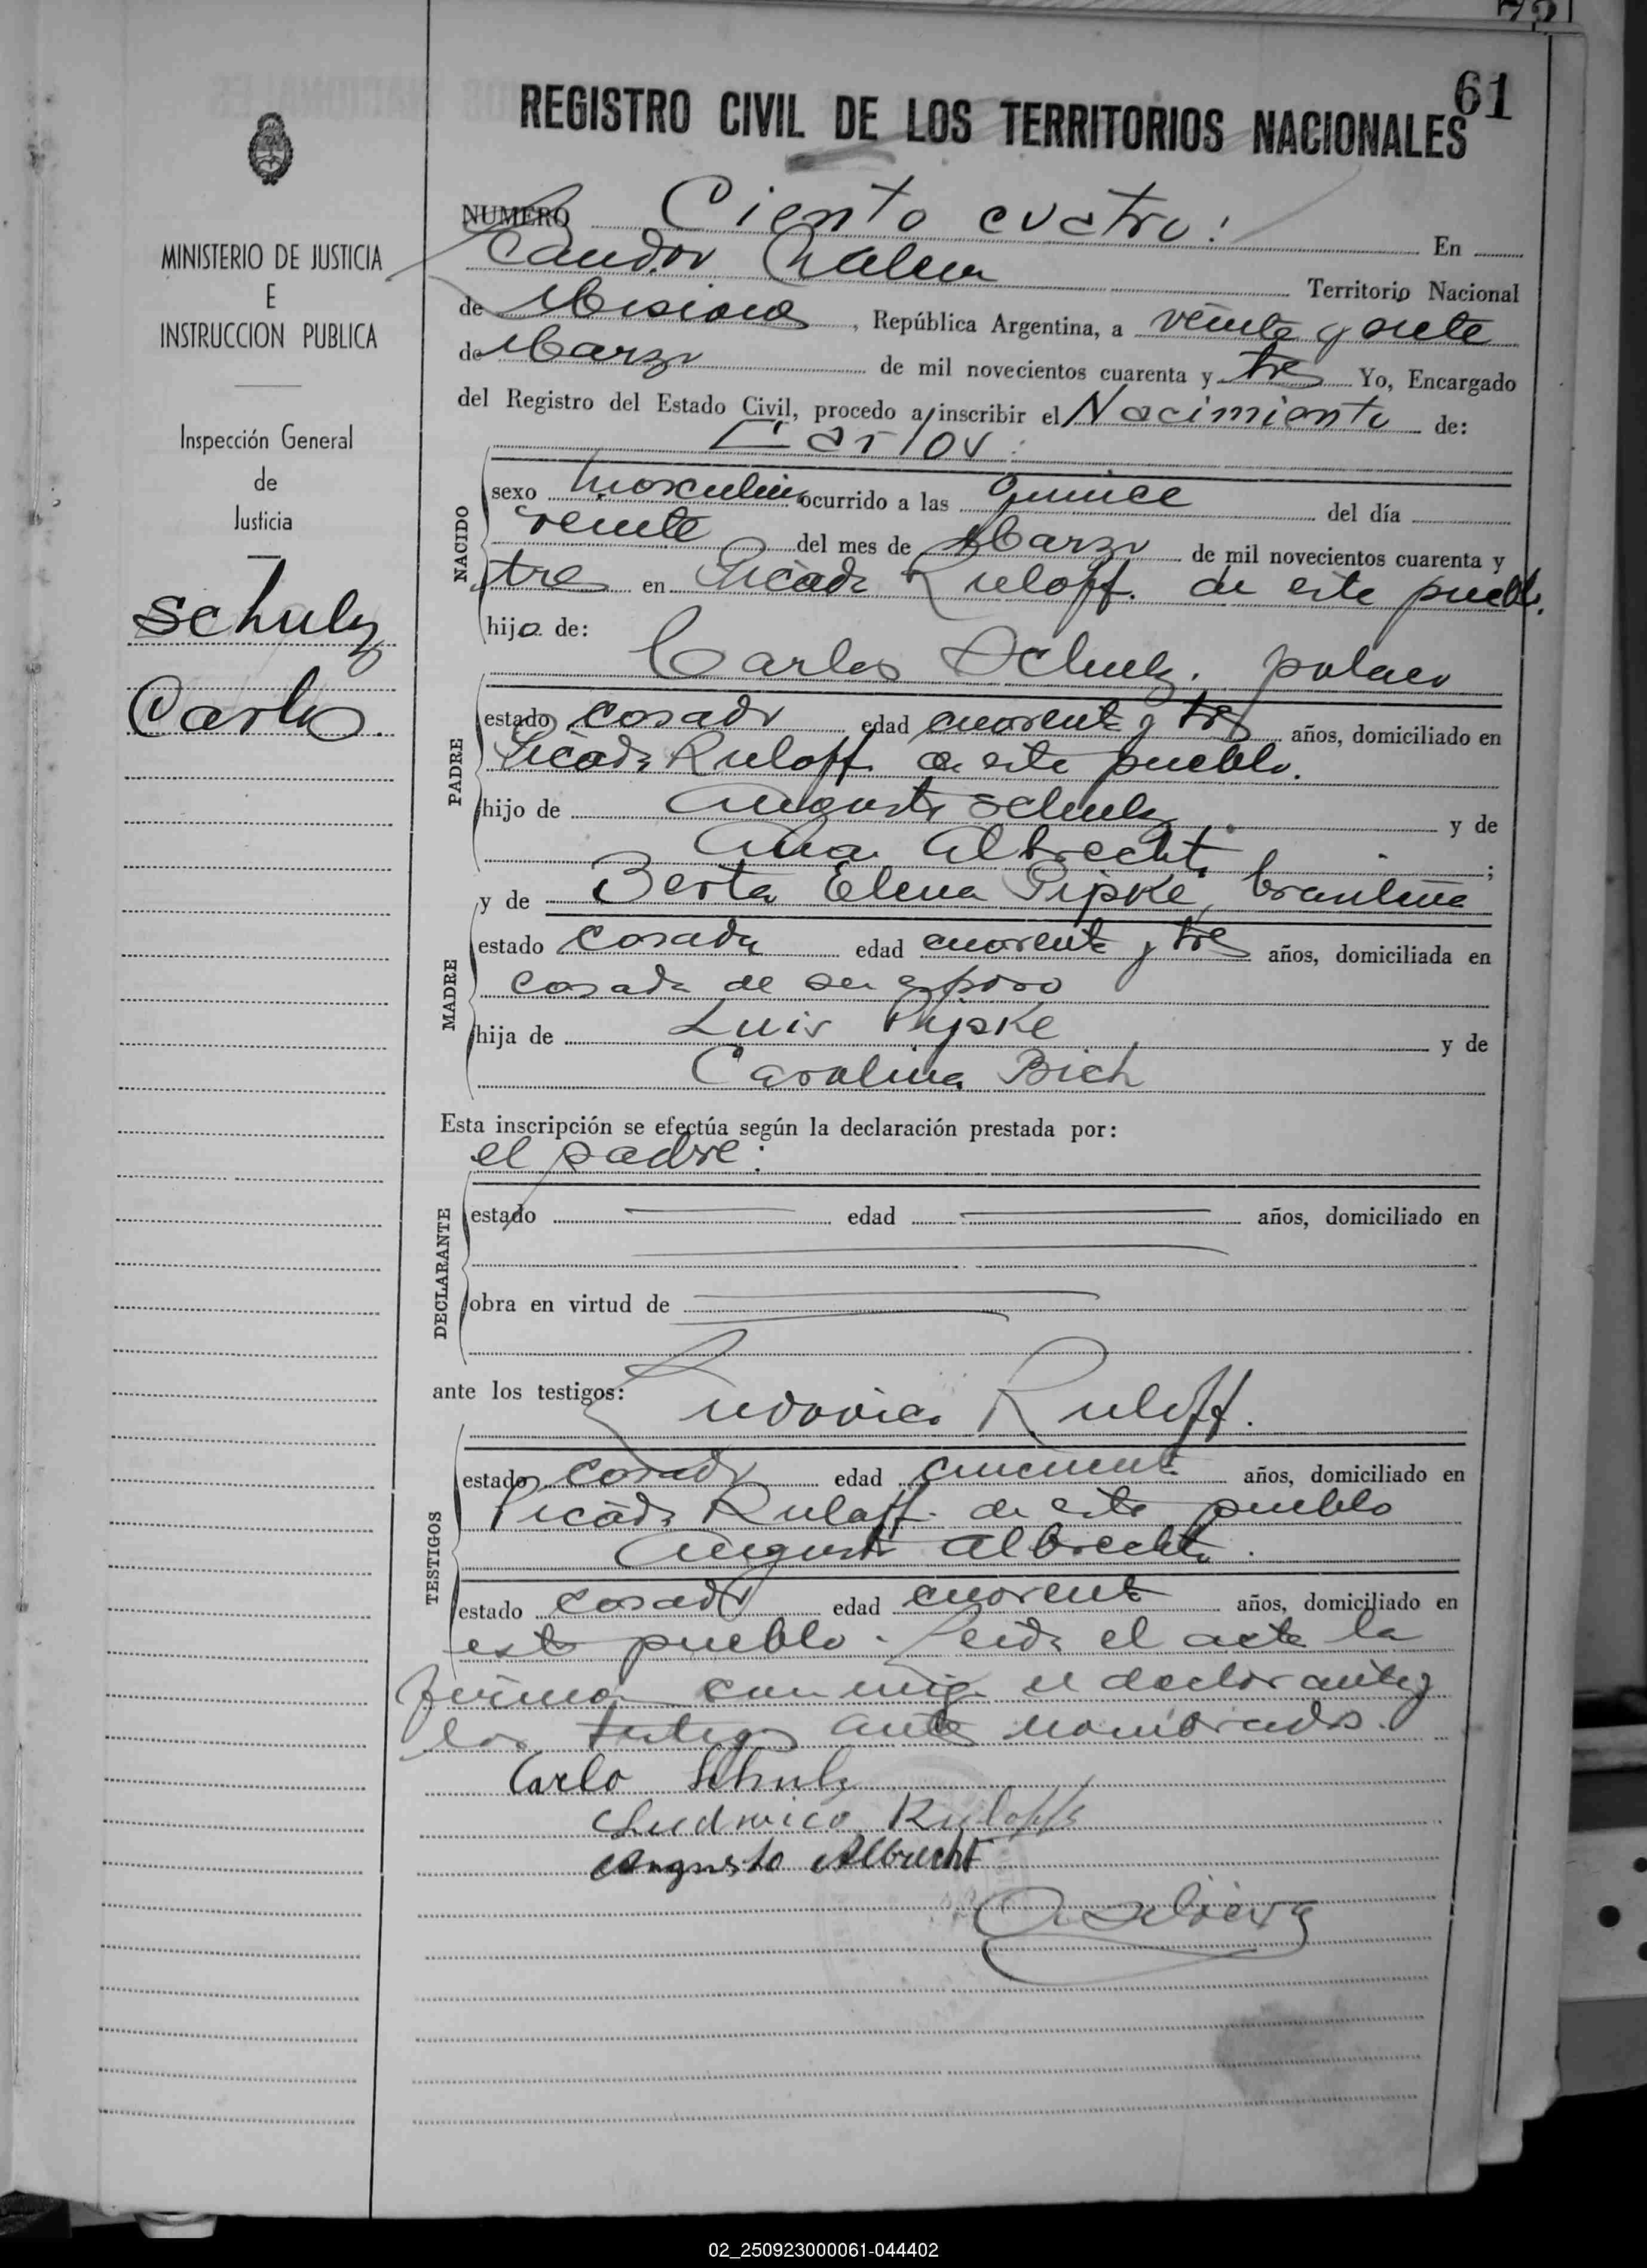 61
REGISTRO CIVIL DE LOS TERRITORIOS NACIONALES
MINISTERIO DE JUSTICIA
E
INSTRUCCION PUBLICA
Inspección General
de
Justicia
Schulz
Carlos.
NUMERO Ciento cuatro: En
Territorio Nacional
de Misiones, República Argentina, a veinte y siete
de Marzo de mil novecientos cuarenta y tres Yo, Encargado
del Registro del Estado Civil, procedo a inscribir el Nacimiento de:
Carlos:
NACIDO
sexo masculino ocurrido a las quince del día
veinte del mes de Marzo de mil novecientos cuarenta y
tres en Picada Ruloff. de este pueblo.
hijo de:
Carlos Schulz. polaco
PADRE
estado casado edad cuarenta y tres años, domiciliado en
Picada Ruloff de este pueblo.
hijo de Augusto Schulz y de
Ana Albrecht;
y de Berta Elena Pipke, brasileña
MADRE
estado casada edad cuarenta y tres años, domiciliada en
casada de su esposo
hija de Luis Pipke y de
Carolina Bich
Esta inscripción se efectúa según la declaración prestada por:
el padre:
DECLARANTE
estado edad años, domiciliado en
obra en virtud de
ante los testigos: Ludovico Ruloff.
TESTIGOS
estado casado edad cincuenta años, domiciliado en
Picada Ruloff. de este pueblo
Augusto Albrecht.
estado casado edad cuarenta años, domiciliado en
este pueblo. Leida el acta la
firman conmigo el declarante y
los testigos antes nombrados.
Carlo Schulz
Ludwico Ruloffs
Augusto Albrecht
02_250923000061-044402